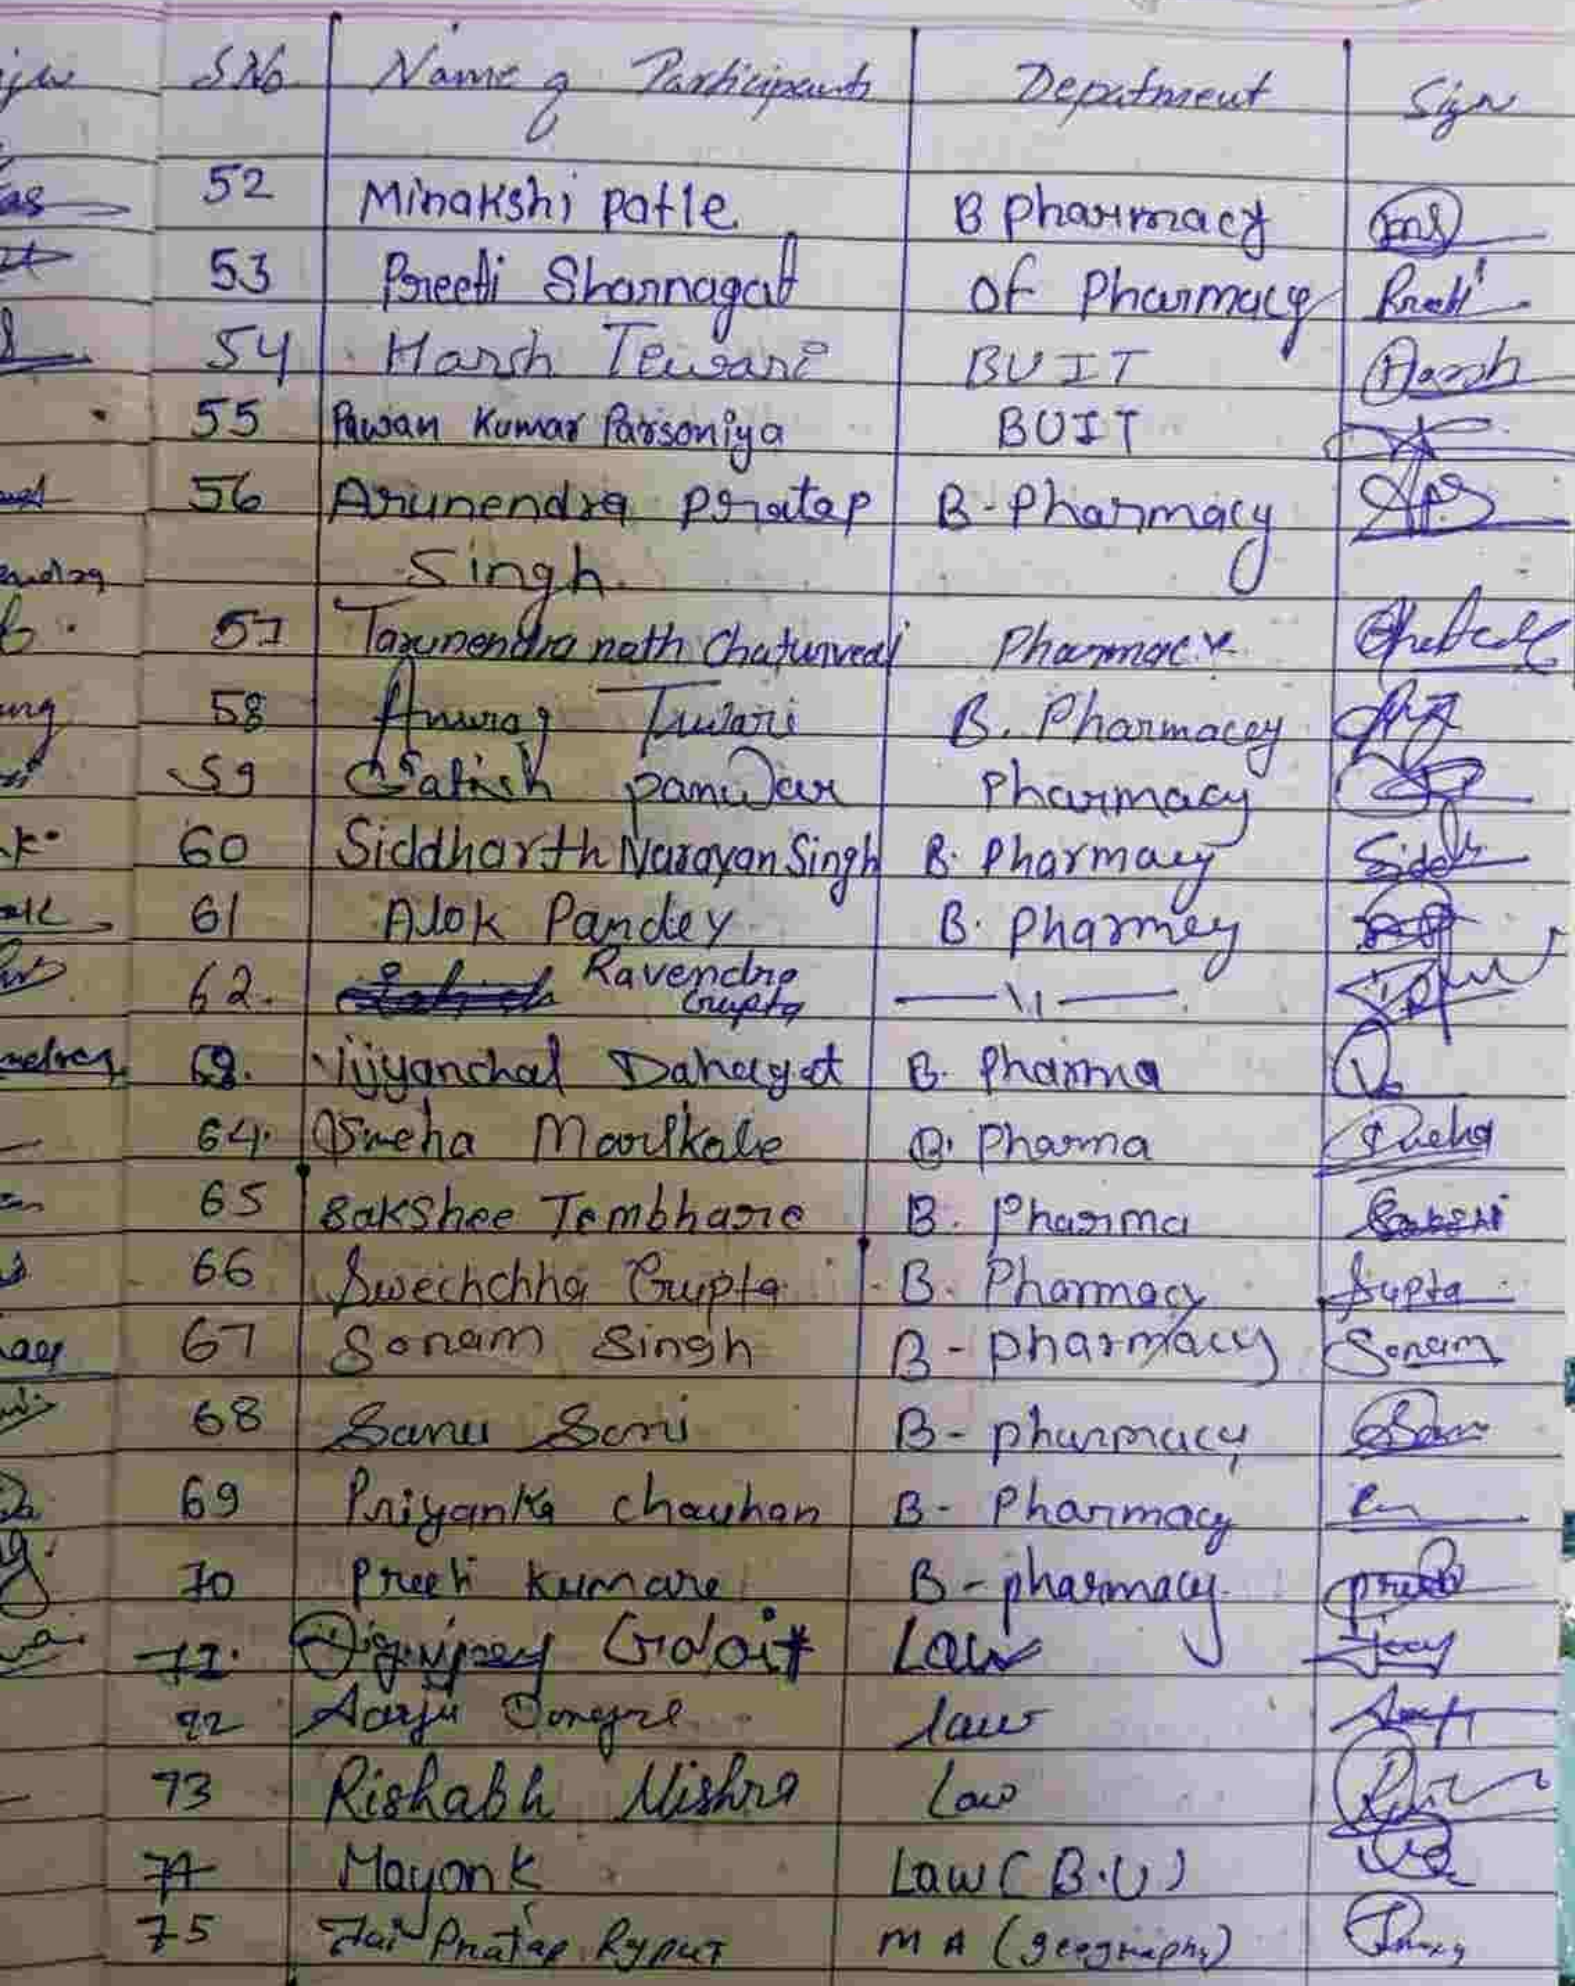 S.No. Name of Participants Depatment Sign
52 Minakshi patle B pharmacy ms
53 Preeti Sharnagat Of Pharmacy Preeti
54 Harsh Tewari BUIT Harsh
55 Pawan Kumar Parsoniya BUIT
56 Arunendra pratap B-Pharmacy APS
Singh
57 Tarunendra nath Chaturvedi Pharmacy
58 Anurag Tiwari B. Pharmacey
59 Satish panwar Pharmacy
60 Siddharth Narayan Singh B. Pharmacy Sidh
61 Alok Pandey B. Pharmey
62. Ravendra Gupta —\\—
63. Vijyanchal Dahayat B. Pharma
64. Sneha Mourkale B. Pharma Sneha
65 Sakshee Tembhare B. Pharma Sakshi
66 Swechchha Gupta B. Pharmacy Gupta
67 Sonam Singh B-pharmacy Sonam
68 Sanu Soni B-pharmacy
69 Priyanka chauhan B-Pharmacy
70 Preeti Kumare B-pharmacy preeti
71. Law Jay
72 Aarju Dongre law
73 Rishabh Mishra Law
74 Mayank Law (B.U)
75 Jai Pratap Rajput MA (geography)